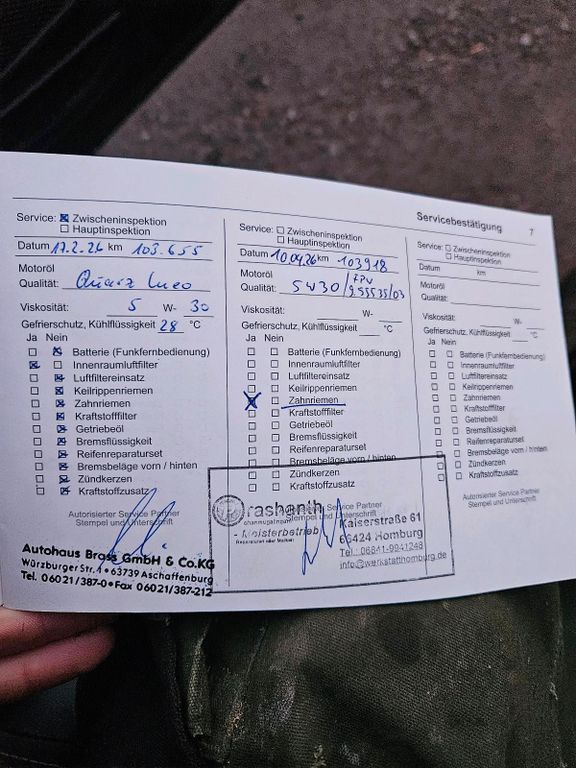 Servicebestätigung 7
Service: ☒ Zwischeninspektion
☐ Hauptinspektion
Datum 17.2.26 km 103.655
Motoröl
Qualität: Quarz Ineo
Viskosität: 5 W- 30
Gefrierschutz, Kühlflüssigkeit 28 °C
Ja Nein
☐ ☒ Batterie (Funkfernbedienung)
☒ ☐ Innenraumluftfilter
☐ ☒ Luftfiltereinsatz
☐ ☒ Keilrippenriemen
☐ ☒ Zahnriemen
☐ ☒ Kraftstofffilter
☐ ☒ Getriebeöl
☐ ☒ Bremsflüssigkeit
☐ ☒ Reifenreparaturset
☐ ☒ Bremsbeläge vorn / hinten
☐ ☒ Zündkerzen
☐ ☒ Kraftstoffzusatz
Autorisierter Service Partner
Stempel und Unterschrift
Autohaus Brass GmbH & Co.KG
Würzburger Str. 1 • 63739 Aschaffenburg
Tel. 06021/387-0 • Fax 06021/387-212
Service: ☐ Zwischeninspektion
☐ Hauptinspektion
Datum 10.04.26 km 103918
Motoröl
Qualität: 5W30
Viskosität: W-
Gefrierschutz, Kühlflüssigkeit °C
Ja Nein
☐ ☐ Batterie (Funkfernbedienung)
☐ ☐ Innenraumluftfilter
☐ ☐ Luftfiltereinsatz
☐ ☐ Keilrippenriemen
☒ ☐ Zahnriemen
☐ ☐ Kraftstofffilter
☐ ☐ Getriebeöl
☐ ☐ Bremsflüssigkeit
☐ ☐ Reifenreparaturset
☐ ☐ Bremsbeläge vorn / hinten
☐ ☐ Zündkerzen
☐ ☐ Kraftstoffzusatz
Service Partner
Stempel und Unterschrift
rashanth
- Meisterbetrieb
Kaiserstraße 61
66424 Homburg
Tel.: 06841-9941248
info@werkstatthomburg.de
Service: ☐ Zwischeninspektion
☐ Hauptinspektion
Datum km
Motoröl
Qualität:
Viskosität: W-
Gefrierschutz, Kühlflüssigkeit °C
Ja Nein
☐ ☐ Batterie (Funkfernbedienung)
☐ ☐ Innenraumluftfilter
☐ ☐ Luftfiltereinsatz
☐ ☐ Keilrippenriemen
☐ ☐ Zahnriemen
☐ ☐ Kraftstofffilter
☐ ☐ Getriebeöl
☐ ☐ Bremsflüssigkeit
☐ ☐ Reifenreparaturset
☐ ☐ Bremsbeläge vorn / hinten
☐ ☐ Zündkerzen
☐ ☐ Kraftstoffzusatz
Autorisierter Service Partner
Stempel und Unterschrift